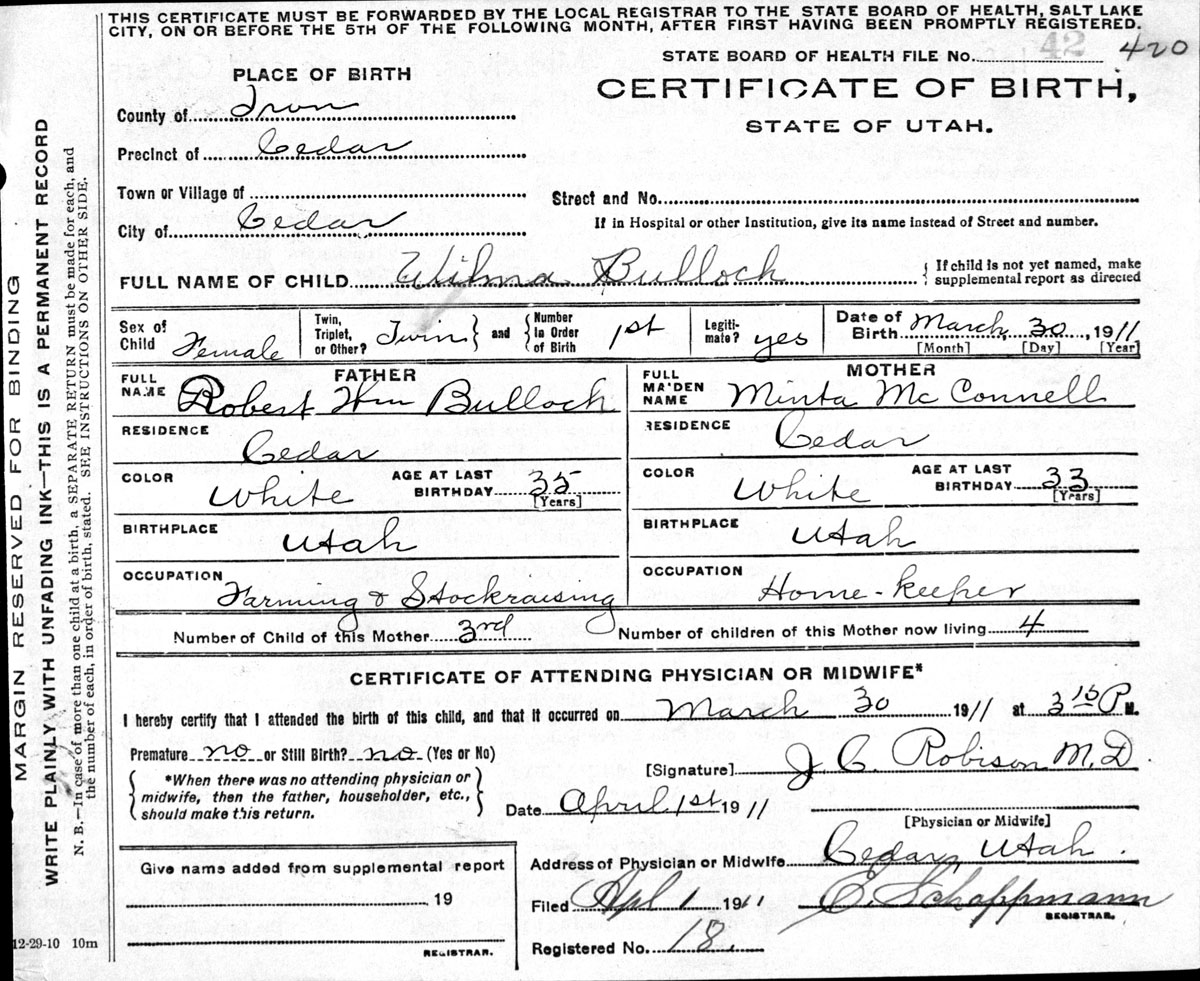 THIS CERTIFICATE MUST BE FORWARDED BY THE LOCAL REGISTRAR TO THE STATE BOARD OF HEALTH, SALT LAKE
CITY, ON OR BEFORE THE 5TH OF THE FOLLOWING MONTH, AFTER FIRST HAVING BEEN PROMPTLY REGISTERED.
STATE BOARD OF HEALTH FILE No. 42 420
PLACE OF BIRTH
CERTIFICATE OF BIRTH,
STATE OF UTAH.
County of Iron
Precinct of Cedar
Town or Village of
Street and No.
City of Cedar
If in Hospital or other Institution, give its name instead of Street and number.
FULL NAME OF CHILD Wilma Bulloch { If child is not yet named, make
supplemental report as directed
Sex of Child Female
Twin, Triplet, or Other? Twin } and { Number in Order of Birth 1st
Legiti-mate? yes
Date of Birth March 30, 1911
[Month] [Day] [Year]
FATHER
FULL NAME Robert Wm Bulloch
RESIDENCE
Cedar
COLOR White AGE AT LAST BIRTHDAY 35
[Years]
BIRTHPLACE
Utah
OCCUPATION
Farming & Stockraising
MOTHER
FULL MAIDEN NAME Minta Mc Connell
RESIDENCE
Cedar
COLOR White AGE AT LAST BIRTHDAY 33
[Years]
BIRTHPLACE
Utah
OCCUPATION
Home-keeper
Number of Child of this Mother 3rd Number of children of this Mother now living 4
CERTIFICATE OF ATTENDING PHYSICIAN OR MIDWIFE*
I hereby certify that I attended the birth of this child, and that it occurred on March 30 1911 at 3 15 P M.
Premature no or Still Birth? no (Yes or No)
{ *When there was no attending physician or
midwife, then the father, householder, etc.,
should make this return. }
[Signature] J C. Robison M.D
Date April 1st 1911
[Physician or Midwife]
Address of Physician or Midwife Cedar, Utah.
Filed Apl 1 1911 E. Schoppmann
REGISTRAR.
Registered No. 18.
Give name added from supplemental report
19
REGISTRAR.
12-29-10 10m
MARGIN RESERVED FOR BINDING
WRITE PLAINLY WITH UNFADING INK—THIS IS A PERMANENT RECORD
N. B.—In case of more than one child at a birth, a SEPARATE RETURN must be made for each, and
the number of each, in order of birth, stated. SEE INSTRUCTIONS ON OTHER SIDE.